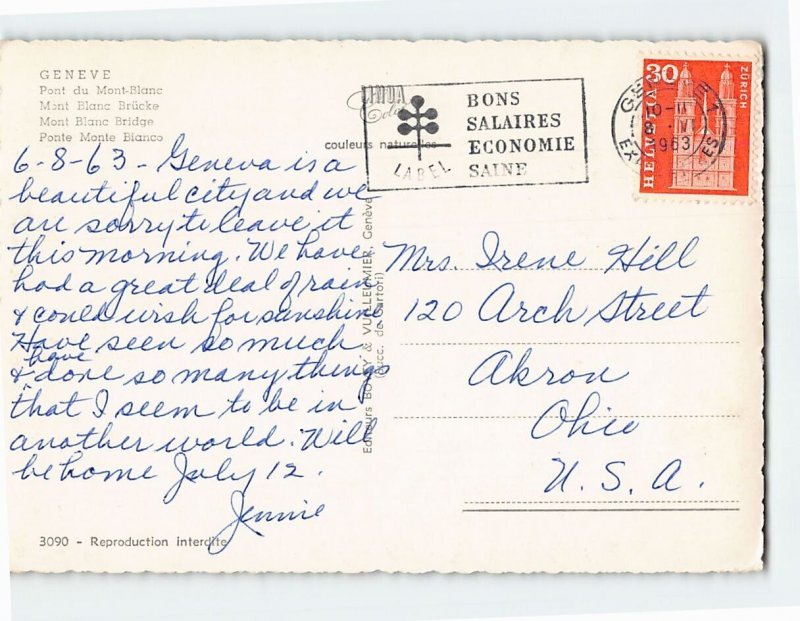 GENEVE
Pont du Mont-Blanc
Mont Blanc Brücke
Mont Blanc Bridge
Ponte Monte Bianco
couleurs naturelles
6-8-63 - Geneva is a
beautiful city and we
are sorry to leave it
this morning. We have
had a great deal of rain
& could wish for sunshine
Have seen so much
& have done so many things
that I seem to be in
another world. Will
be home July 12.
Jennie
3090 - Reproduction interdite
Editeurs & VUILLEUMIER, Genève
(Succ. de Sartori)
LABEL
BONS
SALAIRES
ECONOMIE
SAINE
1963
30
HELVETIA
ZÜRICH
Mrs. Irene Hill
120 Arch Street
Akron
Ohio
U. S. A.